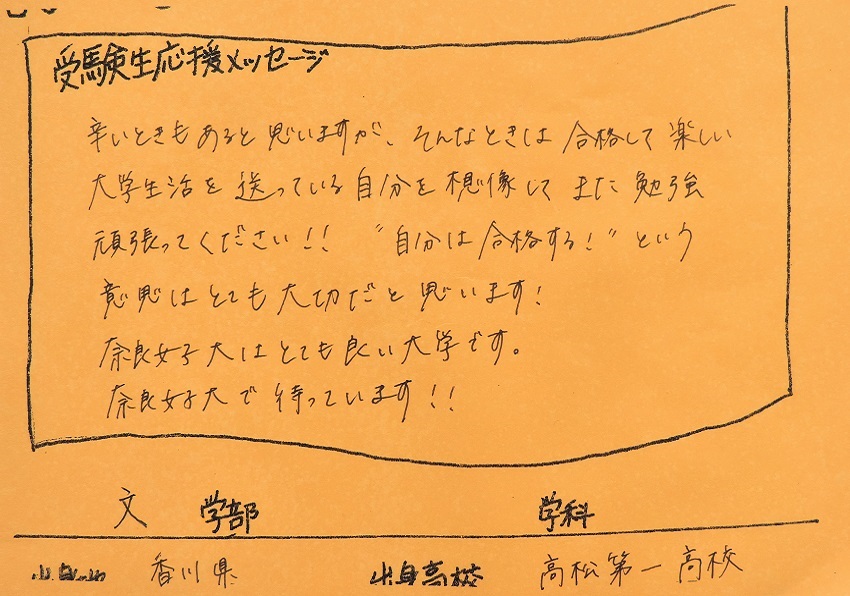 受験生応援メッセージ
辛いときもあると思いますが、そんなときは合格して楽しい
大学生活を送っている自分を想像してまた勉強
頑張ってください!! "自分は合格する!"という
意思はとても大切だと思います!
奈良女子大はとても良い大学です。
奈良女子大で待っています!!
文 学部 学科
香川県 出身高校 高松第一高校